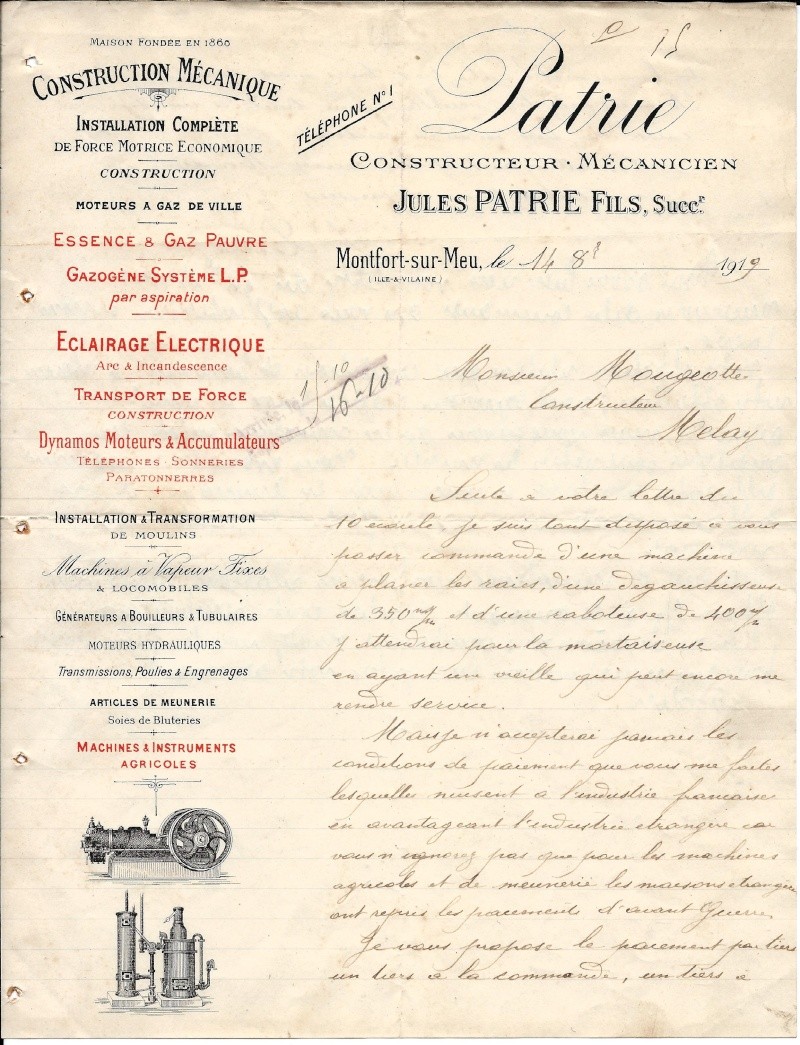 MAISON FONDÉE EN 1860
CONSTRUCTION MÉCANIQUE
INSTALLATION COMPLÈTE
DE FORCE MOTRICE ECONOMIQUE
CONSTRUCTION
MOTEURS A GAZ DE VILLE
ESSENCE & GAZ PAUVRE
GAZOGÈNE SYSTÈME L.P.
par aspiration
ECLAIRAGE ELECTRIQUE
ARC & INCANDESCENCE
TRANSPORT DE FORCE
CONSTRUCTION
Dynamos Moteurs & Accumulateurs
TÉLÉPHONES · SONNERIES
PARATONNERRES
INSTALLATION & TRANSFORMATION
DE MOULINS
Machines à Vapeur Fixes
& LOCOMOBILES
GÉNÉRATEURS A BOUILLEURS & TUBULAIRES
MOTEURS HYDRAULIQUES
Transmissions, Poulies & Engrenages
ARTICLES DE MEUNERIE
Soies de Bluteries
MACHINES & INSTRUMENTS
AGRICOLES
TÉLÉPHONE N° 1
Patrie
CONSTRUCTEUR · MÉCANICIEN
JULES PATRIE FILS, Succr.
Montfort-sur-Meu, le 14 8r 1919
(ILLE-&-VILAINE)
15-10
16-10
Monsieur Mougeotte
Constructeur
Melay
Suite a votre lettre du
10 ecoulé, je suis tout disposé a vous
passer commande d'une machine
a planer les raies, d'une degauchisseuse
de 350 m/m et d'une raboteuse de 400 m/m
j'attendrai pour la mortaiseuse
en ayant un vieille qui peut encore me
rendre service.
Mais je n'accepterai jamais les
conditions de paiement que vous me faites
lesquelles nuisent à l'industrie francaise
en avantageant l'industrie etrangère car
vous n'ignorez pas que pour les machines
agricoles et de meunerie les maisons etrangères
ont repris les paiements d'avant Guerre
Je vous propose le paiement par tiers
un tiers à la commande, un tiers à